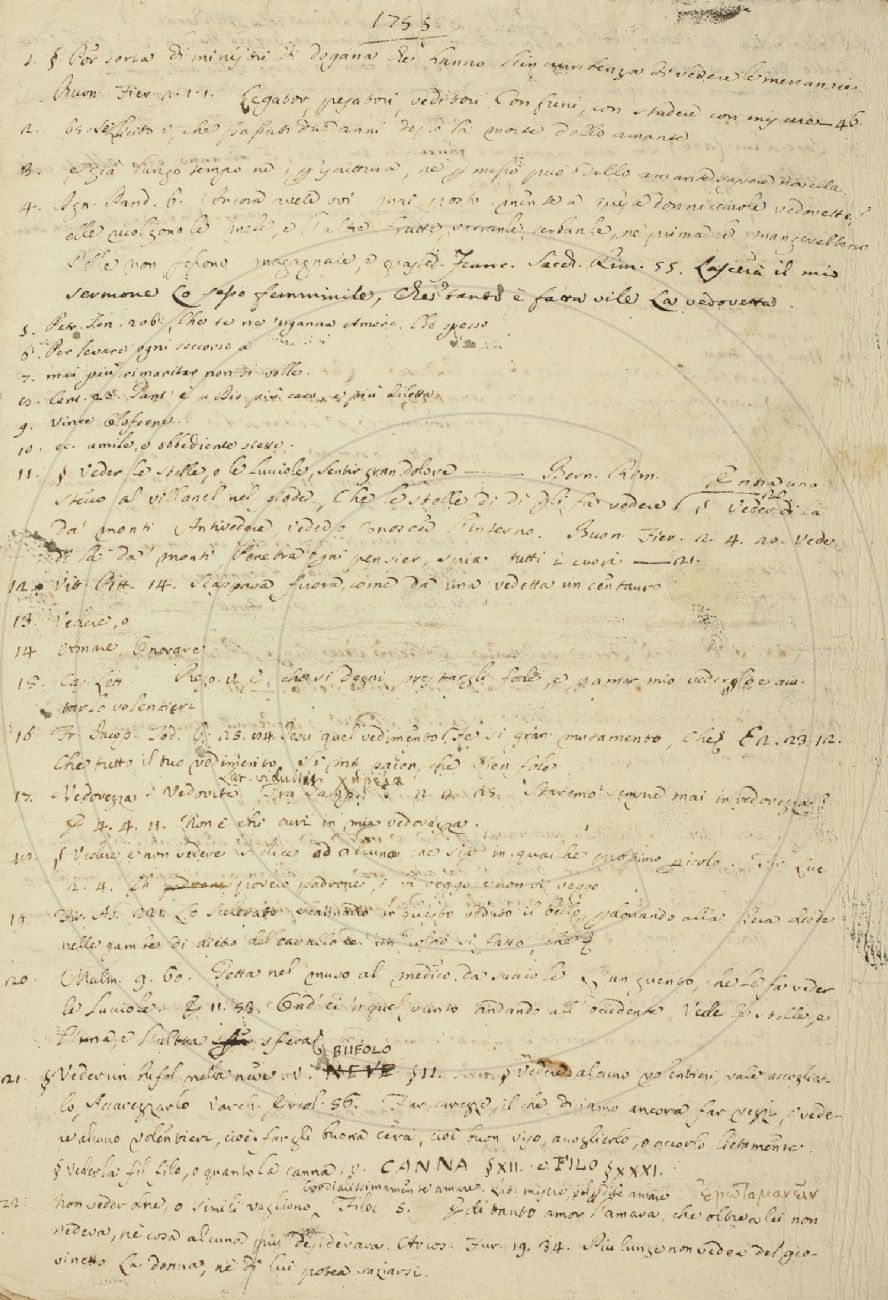 1755
1. § Per sorta di ministri di dogana che hanno l'incumbenza di vedere le mercanzie
Buon. Fier. 2. 1. 1. Legator, pesatori, veditori, Con funi, con stadere con 46.
2. 65. Lecito è, che passati due anni dopo la morte dello amante
3. e già lungo tempo nè scrittura, nè messo può dello amante sapere novella
4. Agn. Pand. 6. Ancora avete voi mai posto mente a queste donnicciuole vedovette?
elle ricolgono le mele, e l'altre frutte, serranle, serbanle, nè prima le mangerebbero
s'elle non fossono magagnate, e guaste. Franc. Sacch. Rim. 55. Lascerà il mio
sermone Lo sesso femminile, Ches'tanto è fatta vile La vedovetta.
5. Petr. Son. 206. Che se ne 'nganna Amore, Che spesso
6. Per levare ogni soccorso a
7. mai più rimaritar non si volle.
8. Cant. 23. Pant' è a Dio più cara, e più diletta
9. vince Oloferne.
10. ec. umile, e obbediente stette.
11. § Veder le stelle, o le lucciole, sentir gran dolore —— Bern. Rim. E una uno
stecco al villanel nel piede, Che le stelle di dì gli fa vedere § Veder di là
da' monti Antivedere vedesse conoscer l'interno. Buon. Fier. 2. 4. 20. Vede
di là da' monti Penetra ogni pensier, spia tutti i cuori —— 21.
12. Vit. Pitt. 14. Scappava fuora, come da una vedetta un centauro
13. Vedere, o
14 Amare, Onorare
15. Cas. Lett. Prego V. S. che si degni prestargli fede, e per amor mio vederlo e aiu-
tarlo volentieri
16. Fr. Jacop. Tod. 6. 25. 14. Jesu quel vedimento Fe sì gran mutamento, Che E 2. 23. 12.
Che tutto il tuo vedimento
Lat. viduitas χηρεία
17. Vedovezza. Vedovità. Fra Jacop. T. 2. 4. 25. Staremo sempre mai in vedovezza?
E 4. 4. 11. Non è chi curi in mia vedovezza.
18. § Vedere e non vedere si dice ad alcuno che sia in qualche prossimo pericolo. Fir. Luc.
2. 4. Eh povero padrone, i' vi veggo e non vi veggo
19. Fir. As. 221. Lo scellerato in questo veduto il bello, perdonando alla fiera diede
nelle gambe di dieto del cavallo un colpo sì fatto, che
20. Malm. 9. 60. Getta nel muso al medico da succiole Un guento, che le fa veder
le lucciole. E 11. 53. Ond' ei 'n quel punto andando all' occidente Vede le stelle, e
l'una, e l'altra sfera
BUFOLO
21. § Veder un bufol nella neve. v. NEVE §11. § Vedere alcuno volentieri, vale accoglier-
lo, Accarezzarlo Varch. Ercol. 56. Far carezze, il che diciamo ancora far vezzi, e vede-
re alcuno volentieri, cioè fargli buona cera, cioè buon viso, accoglierlo, o accorlo lietamente.
§ Vederla fil filo, o quanto la canna, v. CANNA §XII. e FILO §XXXI.
Cordialissimamente amare. Lat. misere, vel perdite amare ἐρωτομανεῖν
22. Non veder oltre, o simili vagliono. Filoc. 5. Ella di tanto amor l'amava, che oltre a lei non
vedeva, nè cosa alcuna più desiderava. Arios. Fur. 19. 34. Più lunge non vedea del gio-
vinetto La donna, nè di lui potea saziarsi.